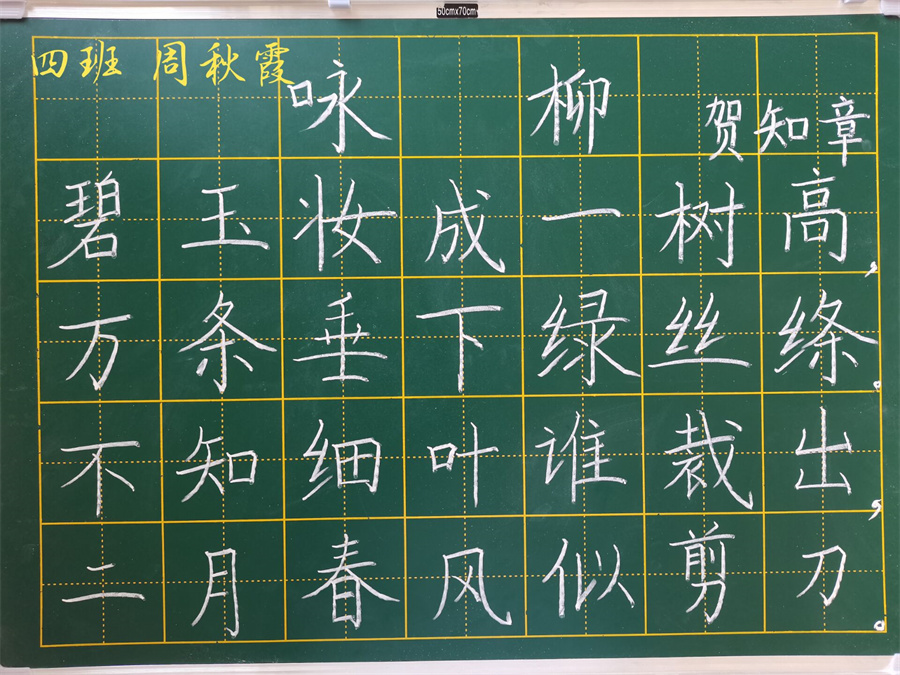 50cmx70cm
四班 周秋霞
咏柳
贺知章
碧玉妆成一树高，
万条垂下绿丝绦。
不知细叶谁裁出，
二月春风似剪刀。